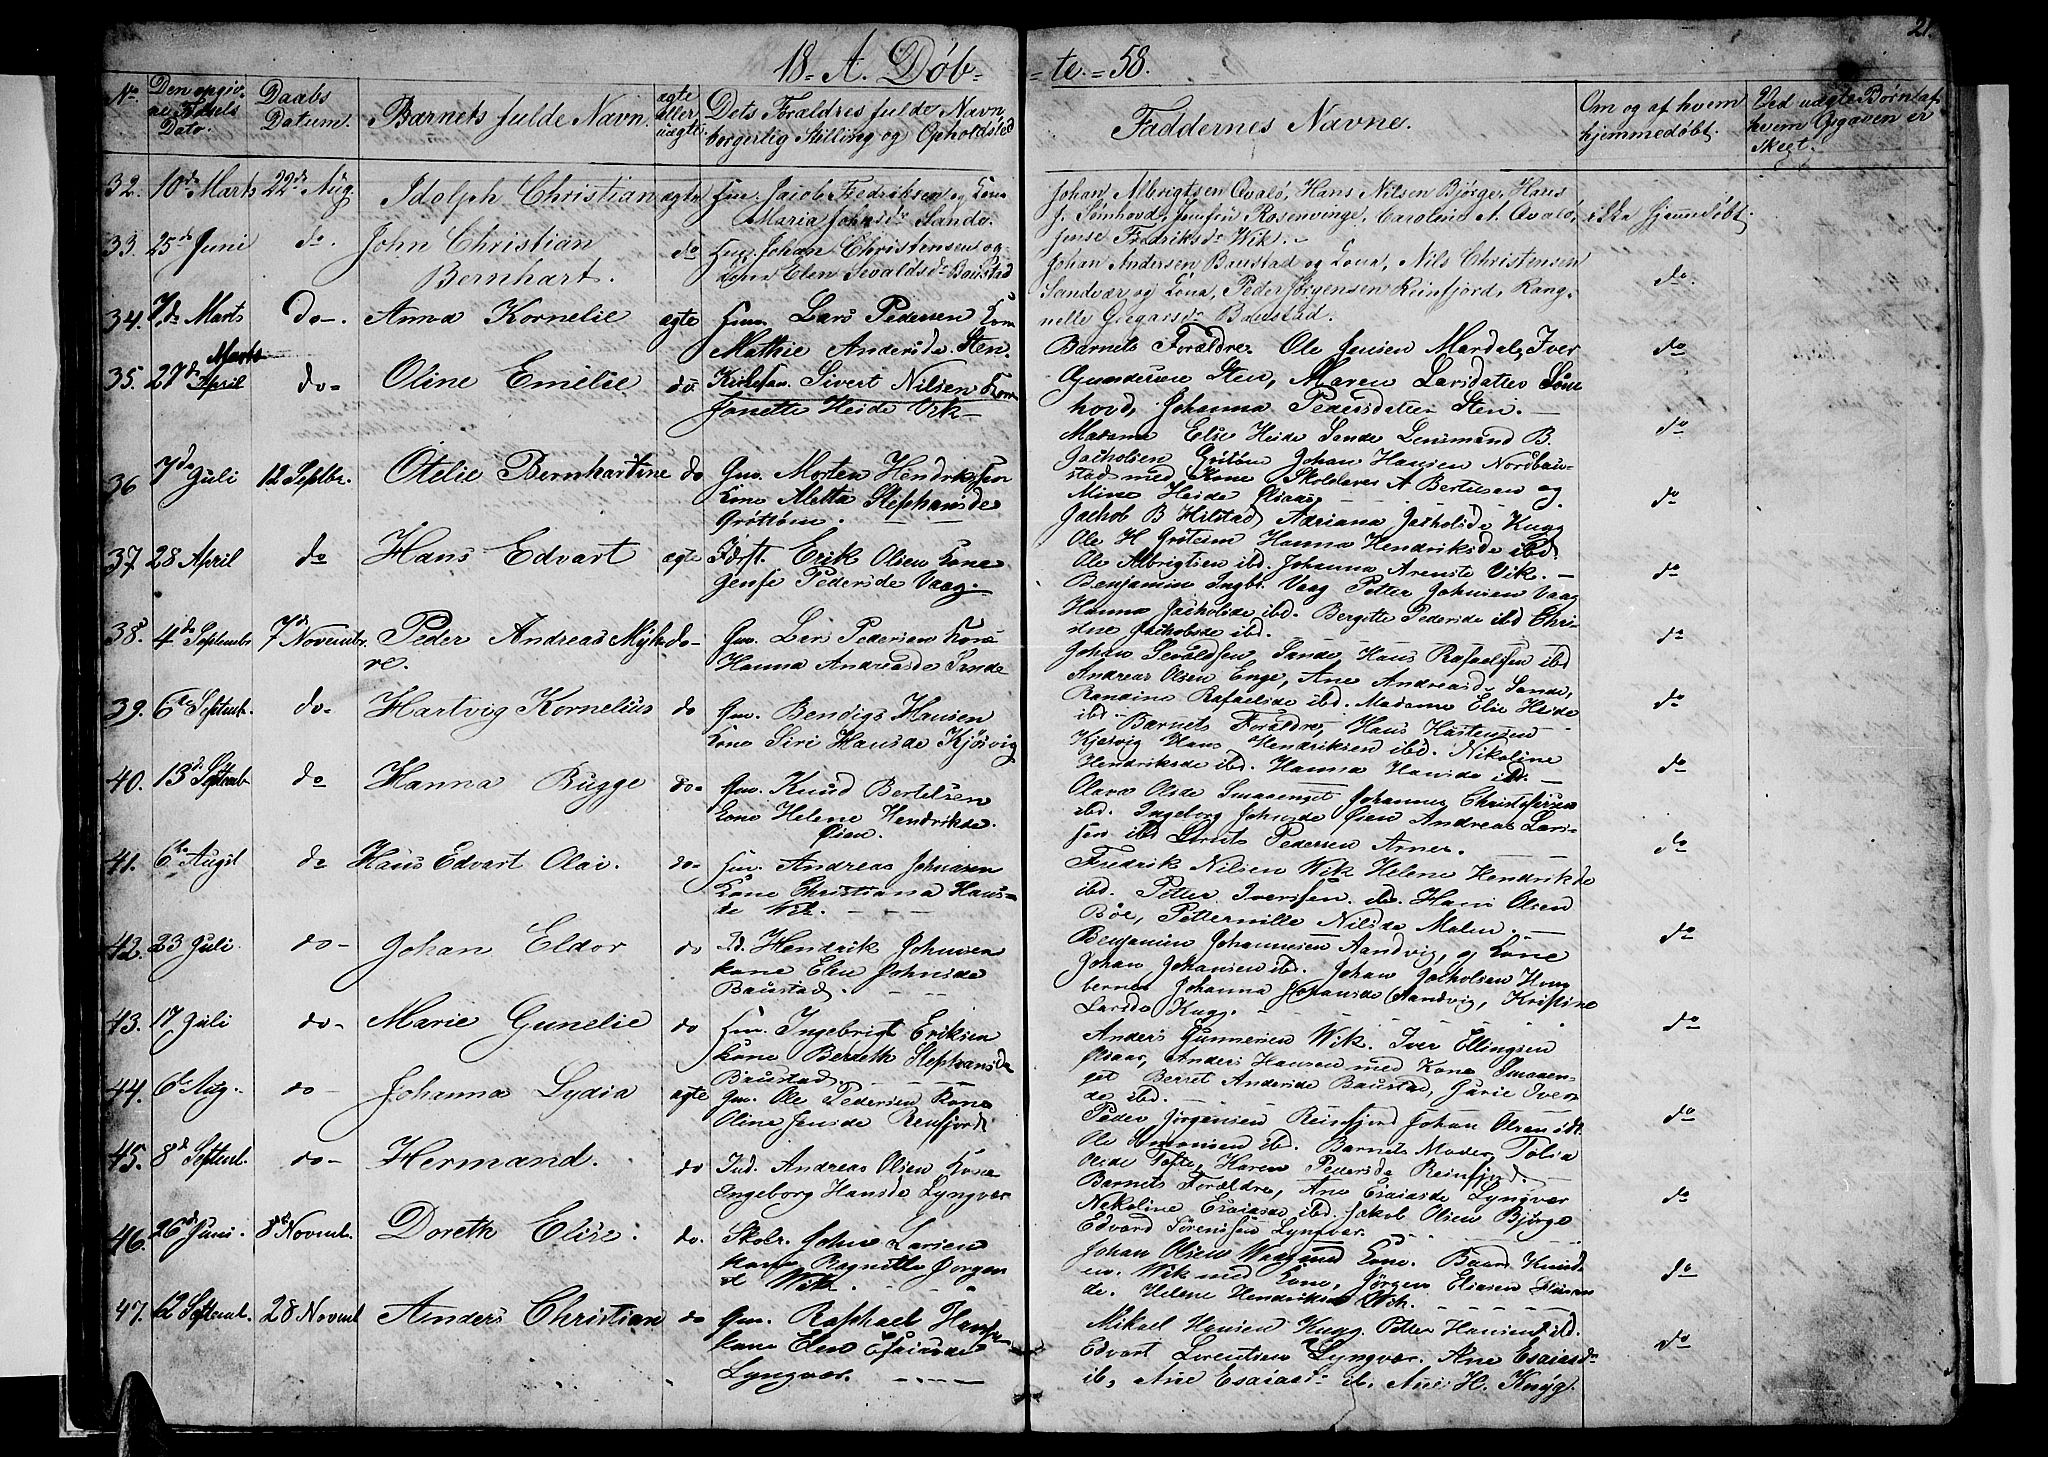 21.
18 = A. Døb = = te. = 58.
No. Den opgiv- ne Fødsels Dato. Daabs Datum. Barnets fulde Navn. ægte eller uægte. Dets Forældres fulde Navn, borgerlig Stilling og Opholdsted Faddernes Navne. Om og af hvem hjemmedøbt. Ved uægte Børn af hvem Opgaven er skegt.
32. 10de Marts 22de Aug. Idolph Christian ægte Huu. Jacob Fredriksen og Kone
Maria Johnsdr Sande.
Johan Albrigtsen Qvalö, Hans Nilsen Bjørge, Hans
J. Sömhovd, Rosenvinge, Caroline A. Qvalö, ikke hjemmedøbt
Jense Fredriksdr Wik. -
33. 25de Juni do. John Christian
Bernhart.
do Huu. Johan Christensen og
Kone Elen Sevaldsdr Baustad
Johan Andersen Baustad og Kona, Nils Christensen do.
Sandvær og Kona, Peder Jørgensen Reinfjord, Rang-
nelle Gregarsdr Baustad.
34. 7de Marts do-. Anna Kornelie ægte Huu. Lars Pedersen Kone
Mathie Andersdr. Sten.
Barnets Forældre. Ole Jensen Mardal, Iver do
Gundersen Sten, Maren Larsdatter Söm
hovd, Johanna Pedersdatter Sten. -
35. 27de Marts April do- Oline Emelie do Sivert Nilsen Kone
Janette Heide Vik-
Madame Elie Heide Sande Lensmand B. do
Jacholsen Grötöm Johan Hansen Nordbau-
stad med Kone Skolelærer A Bertusen og
Mine Heide
36 7de Juli 12 Septbr. Otelie Bernhartine do Gm. Morten Hendriksen
Kone Aletta Stephansde
Gröttöm.
Jachob B Hilstad, Adriana Jacholsde Kugg do
Ole H Grötöm Hanna Hendriksde ibd.
Ole Albrigtsen ibd. Johanna Arentsde Vik. -
37. 28 April do Hans Edvart ægte Erik Olsen Kone
Jense Pedersde Vaag.
Benjamin Ingbr. Vaag Petter Johnsen Vaag do
Hanna Jacholsde ibd. Bergitte Pedersde ibd Chri-
stine Jachobsde ibd.
38. 4de Septembr 7de Novembr. Peder Andreas Myhr- do-
re.
Gm. Lars Pedersen Kone
Hanna Andreasde Sande
Johan Sevaldsen Sande Hans Rafaelsen ibd do
Andreas Olsen Enge, Ane Andreasd. Sande,
Randine Rafaelsde ibd. Madame Elie Heide
ibd.
39. 6te Septemb. do- Hartvig Kornelius do Gm. Bendigs Hansen
Kone Siri Hansde Kjösvig
Barnets Forældre, Hans Hartensen do
Kjösvig Hans Hendriksen ibd. Nikoline
Hendriksde ibd. Hanna Hansde ibd. -
40. 13de Septemb do Hanna Bugge do- Gm. Knud Bertelsen
Kone Helene Hendriksde.
Öien.
Olava Olsde Smaaenget Johannes Christofersen do
ibd. Ingeborg Johnsde Öien Andreas Lars-
sen ibd Lorents Pedersen Arnes.
41. 6te Augst do Hans Edvart Olai. do- Huu. Andreas Johnsen
Kone Christiana Hans-
de Wik.
Fredrik Nilsen Wik Helene Hendriksde do
ibd. Petter Iversen ibd. Hans Olsen
Böe, Petternille Nilsde Malm. -
42. 23 Juli do- Johan Eldor do Id. Hendrik Johnsen
Kone Elen Johnsde
Baustad.
Benjamin Johannesen Aandvig, og Kone do
Johan Johansen ibd. Johan Jacholsen Hug
bernes Johanna Johansde Aandvig, Kristine
Larsde Kugg.
43. 17 Juli do- Marie Gunelie do Huu. Ingebrigt Eriksen
Kone Bereth Stephansde
Baustad.
Anders Gunnersen Wik. Iver Ellingsen do
Anders Hansen med Kone Smaaen-
get Berret Andersde Baustad, Gurie Ivers
de ibd.
44. 6te Aug. do- Johanna Lydia ægte Gm. Ole Pedersen Kone
Oline Jensde Reinfjord
Peder Jørgensen Reinfjord Johan Olsen ibd. do
Ole Simonsen ibd. Barnets Moder, Tolia
Olsde Tofte, Karen Pedersde Reinfjord
45. 8de Septemb. do- Hermand. do Ind. Andreas Olsen Kone
Ingeborg Hansde Lyngvær
Barnets Forældre, Ane Esaiasde Lyngvær do
Nekoline Esaiasde ibd. Jakob Olsen Bjørge
Edvard Sörensen Lyngvær.
46. 26de Juni. 8de Novemb. Doreth Elise. do. Skolr. John Larsen
Kone Ragnilla Jörgens
d Wik.
Johan Olsen Waag med Kone. Baard Knud- do
en. Wik med Kone, Jörgen Eliasen
de. Helene Hendriksd Wik.
47. 12 Septemb. 28 Novemb Anders Christian do Gm. Raphael Hansen
Kone Elen Esaiasde
Lyngvær.
Mikael Hansen Kugg. Petter Hansen ibd. do
Edvart Lorentsen Lyngvær. Ane Esaiasdr
ib, Ane Esaiasdr ib, Ane H. Kugg.